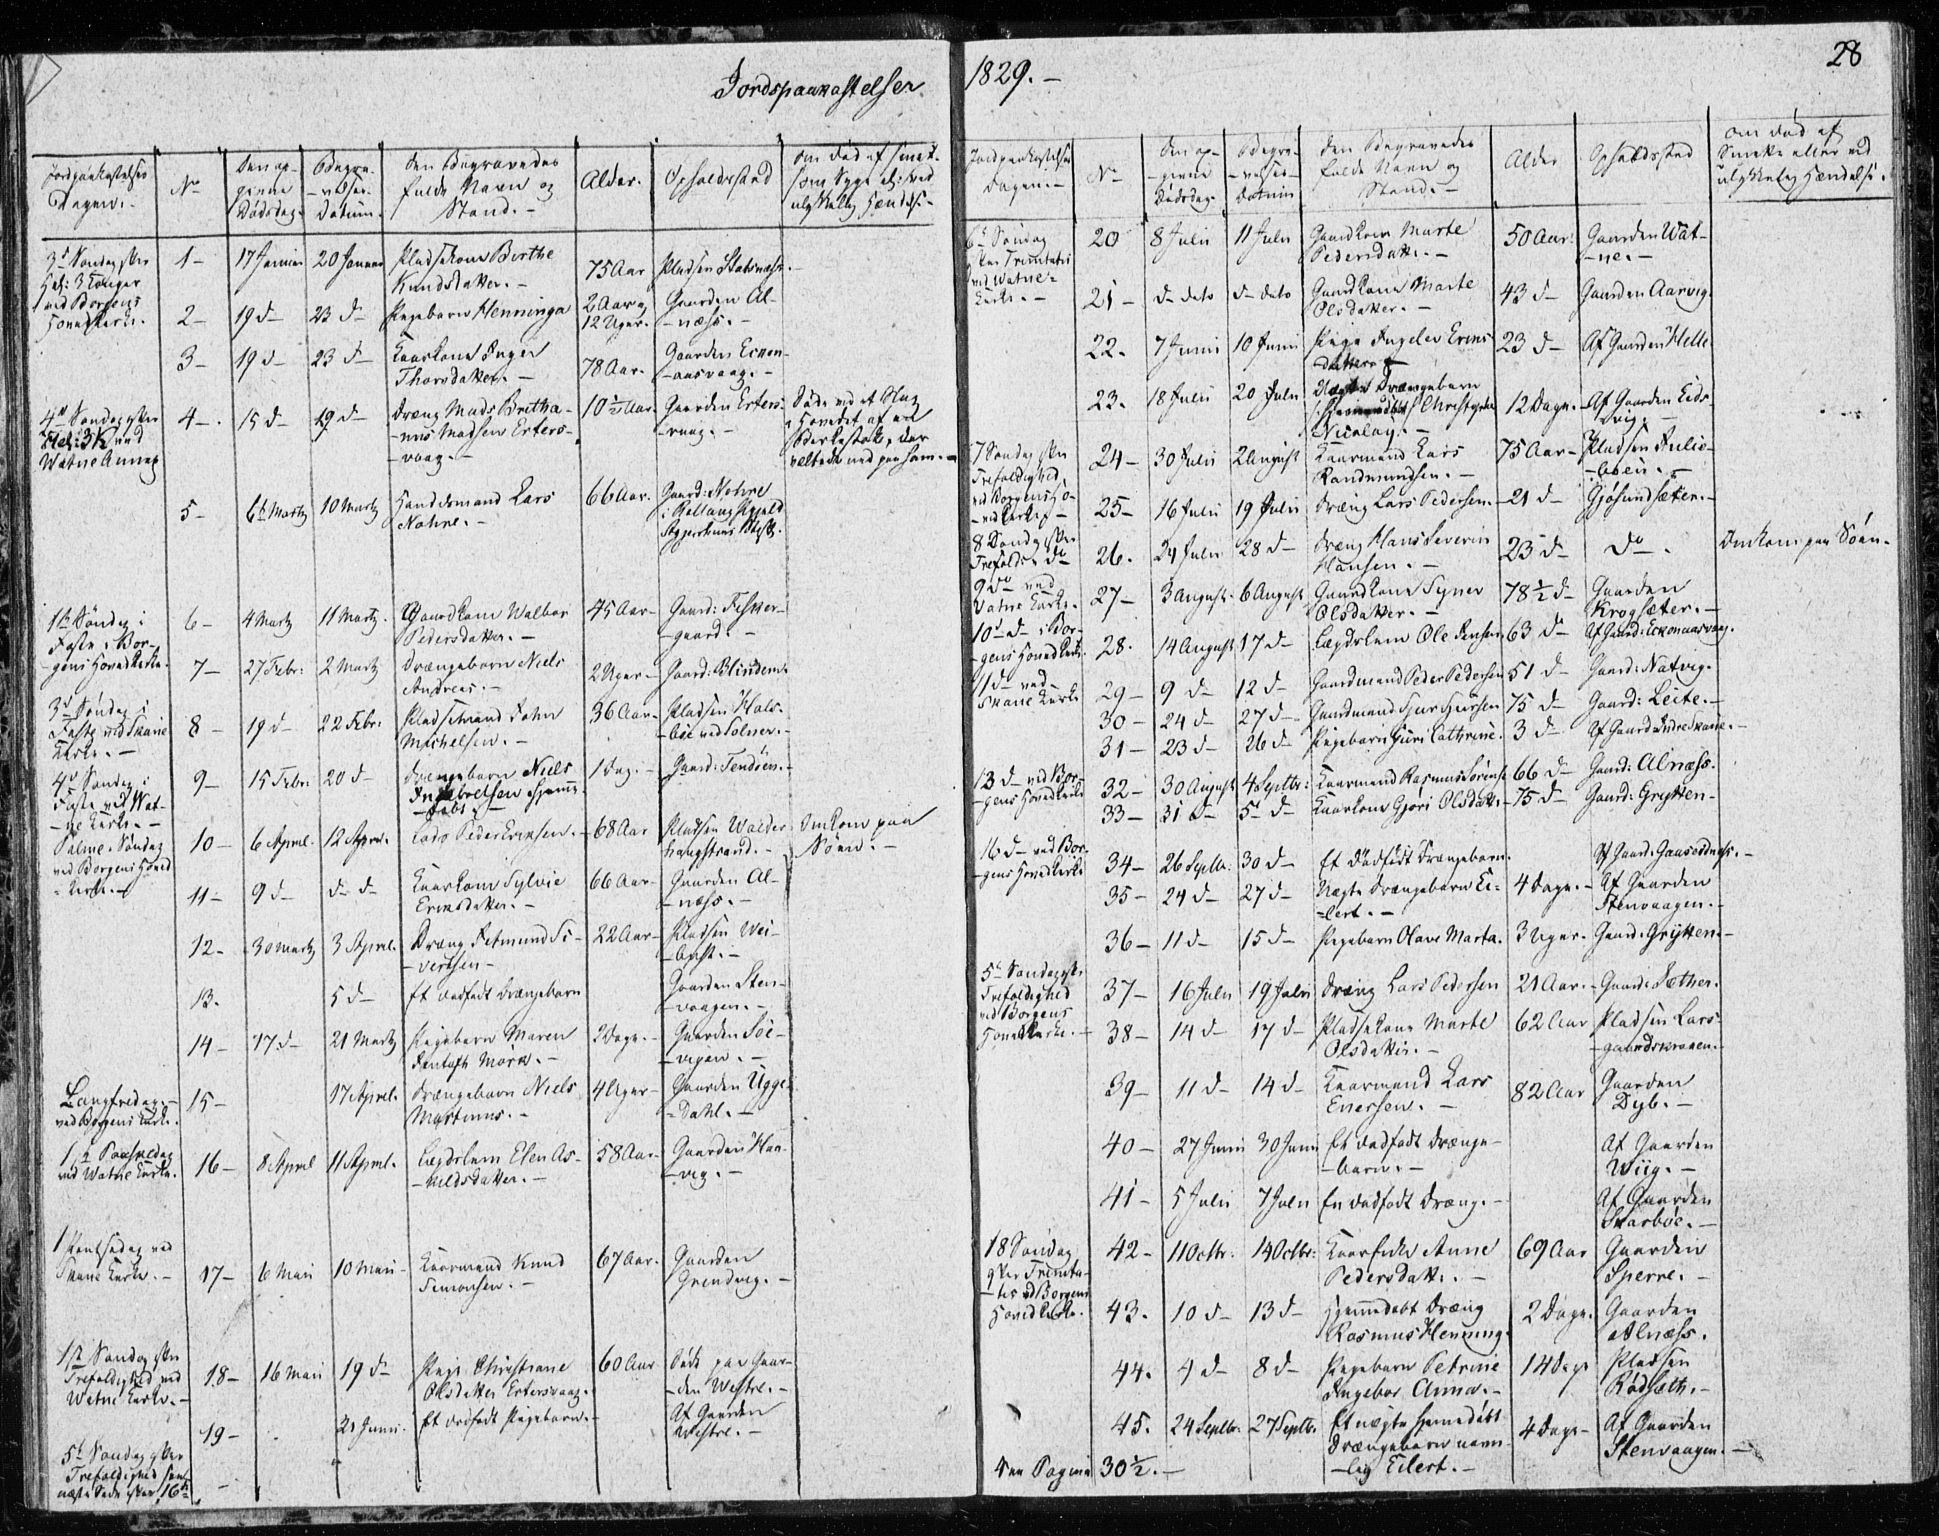 Jordspaakastelser
1829. –
28
Jordpaakastelses Dagen. –
No
Den op-
givne
Dødsdag.
Begra-
-velses-
Datum. –
Den Begravedes
fulde Navn og
Stand. –
Alder. –
Opholdssted
Om død af smit-
som Syge el: ved
ulykkelig Hændelse –
3d Søndag efter
Hel: 3 Konger
ved Borgens
Hovedkirke.
1 –
17 Januar
20 Januar
Pladsekone Birthe
Knudsdatter. –
75 Aar
Pladsen Statsnæss. –
2 –
19 d –
23 d –
Pigebarn Henninga
2 Aar og
12 Uger.
Gaarden Al-
-næss. –
3 –
19 d –
23 d –
Kaarkone Inger
Thorsdatter. –
78 Aar. –
Gaarden Ecnon-
-aasvaag. –
4d Søndag efter
Hel: 3 K ved
Watne Annex
4 –
15 d –
19 d –
Dreng Mads Britha-
-nus Madsen Erters-
-vaag. –
10 ½ Aar.
Gaarden Erters-
-vaag. –
Døde ved et Slag
i Hovedet af en
Birkestok, der
veltede ned paa ham. –
5 –
6te Martz
10 Martz
Handelsmand Lars
Nohre. –
66 Aar.
Gaard: Nohre
1te Søndag i
Faste i Bor-
-gens Hovedkirke.
6 –
4 Martz
11 Martz.
Gaardkone Walbor
Pedersdatter. –
45 Aar –
Gaard: Fisker-
-gaard. –
7 –
27 Febr:
2 Martz
Drængebarn Niels
Andreas. –
2 Uger –
Gaard: Blindem.
3d Søndag i
Faste ved Skane
Kirke. –
8 –
19 d –
22 Febr:
Pladsemand John
Michelsen. –
36 Aar. –
Pladsen Hals-
-bøe ved Solner. –
4d Søndag i
Faste ved Wat-
-ne Kirke. –
9 –
15 Febr:
20 d –
Drængebarn Niels
Ingebretsen hjemme
døbt. –
1 Dag. –
Gaard: Tendøen. –
Palme-Søndag
ved Borgens Hoved
-kirke. –
10 –
6 April.
12 April.
Lods Peder Ericksen. –
68 Aar
Pladsen Walder-
haugstrand. –
Omkom paa
Søen. –
11 –
9 d –
d – d –
Kaarkone Sylvie
Ericksdatter. –
66 Aar –
Gaarden Al-
-næss. –
12 –
30 Martz
3 April.
Dræng Petmund Si-
-vertsen –
22 Aar –
Pladsen Wei-
13.
5 d –
Et dødfødt Drængebarn
Gaarden Sten-
-vaagen. –
14 –
17 d –
21 Martz
Pigebarn Maren
2 Dage. –
Gaarden Søe-
-vigen. –
Langfredag. –
ved Borgens Kirke.
15 –
17 April.
Drængebarn Niels
Martinus. –
4 Uger –
Gaarden Ugge-
-Dahl. –
1te Paaskedag
ved Watne Kirke.
16 –
8 April
11 April.
Lægdslem Elen As-
-kildsdatter. –
58 Aar –
Gaarden Han-
-vig. –
1 Pintsedag ved
Skane Kirke. –
17 –
6 Maii
10 Maii –
Kaarmand Knud
Simonsen. –
67 Aar.
Gaarden
Grendvig. –
1te Søndag efter
Trefoldighed ved
Watne Kirke. –
18 –
16 Maii
19 d –
Pige Christiane
Olsdatter Ertersvaag.
60 Aar
Døde paa Gaar-
-den Westre. –
19 –
21 Junii.
Et dødfødt Pigebarn. –
Af Gaarden
Westre. –
5te Søndag efter
Trefoldighed
næste Side efter 16de
Jordpaakastelses
Dagen. –
No
Den op-
-givne
Dødsdag.
Begra-
velses-
Datum
Den Begravedes
fulde Navn og
Stand. –
Alder
Opholdssted
Om død af
Smitte eller ved
ulykkelig Hændelse. –
6te Søndag
efter Trinitatis
ved Watne-
Kirke. –
20
8 Julii
11 Julii
Gaardkone Marte
Pedersdatt. –
50 Aar.
Gaarden Wat-
-ne. –
21 –
d – dato
d – dato
Gaardkone Marte
Olsdatter. –
43 d –
Gaarden Aarvig.
22.
7 Junii
10 Junii
Pige Ingeler Erics
datter
23 d –
Af Gaarden Helle
23.
18 Julii
20 Julii
Uægte Drængebarn
Christopher
Nicolay. –
12 Dage. –
Af Gaarden Eids-
-vig. –
7 Søndag efter
Trefoldighed
ved Borgens Ho-
-vedkirke –
24 –
30 Julii
2 August
Kaarmand Lars
Randmundsen. –
75 Aar –
Pladsen Julie-
25 –
16 Julii
19 Julii
Dræng Lars Pedersen. –
21 d –
Gjøsundsæter. –
8 Søndag efter
Trefoldh. d –
26.
24 Julii
28 d –
Dræng Hans Severin
Hansen. –
23 d –
Do –
Omkom paa Søen. –
9 do ved
Vatne Kirke.
27 –
3 August.
6 August
Gaardkone Signer
Olsdatter. –
78 ½ d –
Gaarden
Krogsæter. –
10d – d – i Bor-
-gens Hovedkirke.
28.
14 August
17 d –
Lægdslem Ole Jensen
63 d –
Af Gaard: Ecnonaasvaag.
11 d – ved –
Skane Kirke
29 –
9 d –
12 d –
Gaardmand Peder Pedersen
51 d –
Gaard: Natvig.
30 –
24 d –
27 d –
Gaardmand Sjur Sjursen
75 d –
Gaard: Leite. –
31 –
23 d –
26 d –
Pigebarn Guri Cathrine.
3 d –
Af Gaard Indreskane. –
13 d – ved Bor-
-gens Hovedkirke
32 –
30 August
4 Septbr:
Kaarmand Rasmus Sørens.
66 d –
Gaard: Alnæss.
33 –
31 d –
5 d –
Kaarkone Gjøri Olsdatt. –
75 d –
Gaard: Grytten –
16 d – ved Bor-
-gens Hovedkirke
34 –
26 Septbr.
30 d –
Et dødfødt Drængebarn.
Af Gaard. Gaasedness. –
35 –
24 d –
27 d –
Uægte Drængebarn Ei-
-lert. –
4 Dage. –
Af Gaarden
Stenvaagen. –
36 –
11 d –
15 d –
Pigebarn Olave Marta.
3 Uger.
Gaard: Grytten. –
5te Søndag efter
Trefoldighed
ved Borgens
Hovedkirke. –
37 –
16 Julii
19 Julii
Dræng Lars Pedersen
21 Aar. –
Gaard: Sæther.
38 –
14 d –
17 d –
Pladsekone Marte
Olsdatter. –
62 Aar
Pladsen Lars-
gaardskraaen. –
39 –
11 d –
14 d –
Kaarmand Lars
Eversen. –
82 Aar
Gaarden
Dyb. –
40 –
27 Junii
30 Junii
Et dødfødt Drænge-
-barn. –
Af Gaarden
Wiig. –
41 –
5 Julii
7 Julii
En dødfødt Dræng. –
Af Gaarden
Skarbøe. –
18 Søndag
efter Trinita-
tis ved Borgens
Hovedkirke.
42 –
11 Octbr:
14 Octbr:
Kaarenke Anne
Pedersdatt. –
69 Aar
Gaarden
Sperre. –
43.
10 d –
13 d –
Hjemmedøbt Dræng
Rasmus Henning.
2 Dage.
Gaarden
Alnæss.
44.
4 d –
8 d –
Pigebarn Petrine
Ingebor Anna. –
14 Dage
Pladsen
Rødsæth. –
45.
24 Septbr.
27 Septbr.
Et uægte hjemmedøbt
Drængebarn navn-
-lig Eilert. –
4 Dage –
Af Gaarden
Stenvaagen. –
See Pagina 30 ½. –